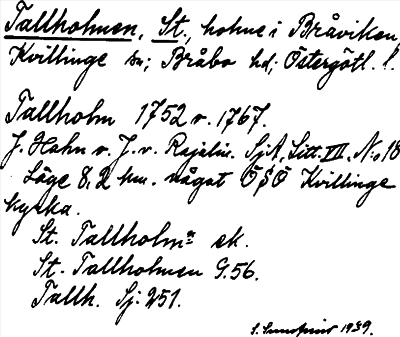 Tallholmen, St., holme i Bråviken,
Kvillinge sn; Bråbo hd; Östergötl. l.
Tallholm 1752 v. 1767.
J. Hahn v. J. v. Rajalin. SjA, Litt. VII, N:o 18
Läge 8,2 km. något Ö§Ö Kvillinge
kyrka.
St. Tallholmn ek.
St. Tallholmen G.56.
Tallh. Sj. 251.
1939.